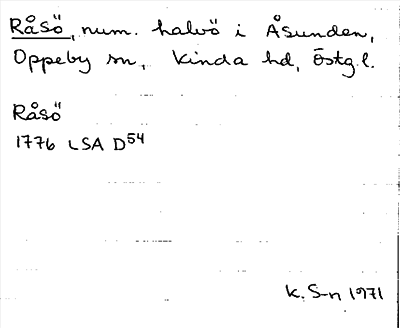 Råsö, num. halvö i Åsunden,
Oppeby sn, Kinda hd, Östg.l.
Råsö
1776 LSA D54
K. S-n 1971